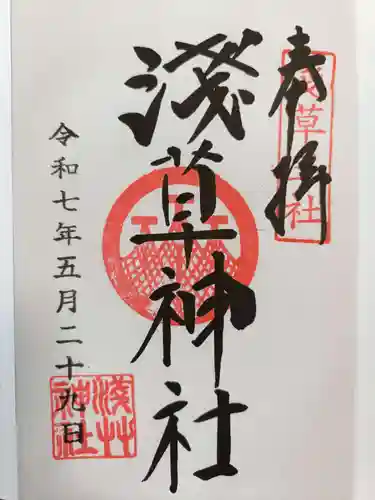 奉拝
浅草神社
淺草神社
令和七年五月二十九日
淺草神社